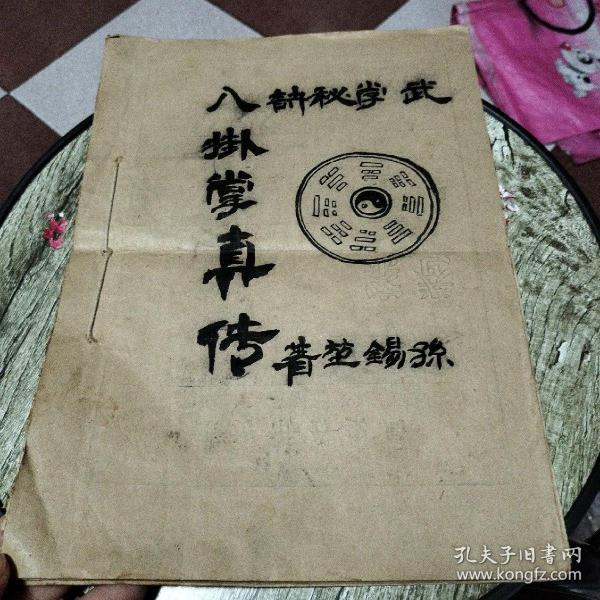 武学秘訣
八掛掌真传
孫錫堃著
孔夫子旧书网
www.kongfz.com